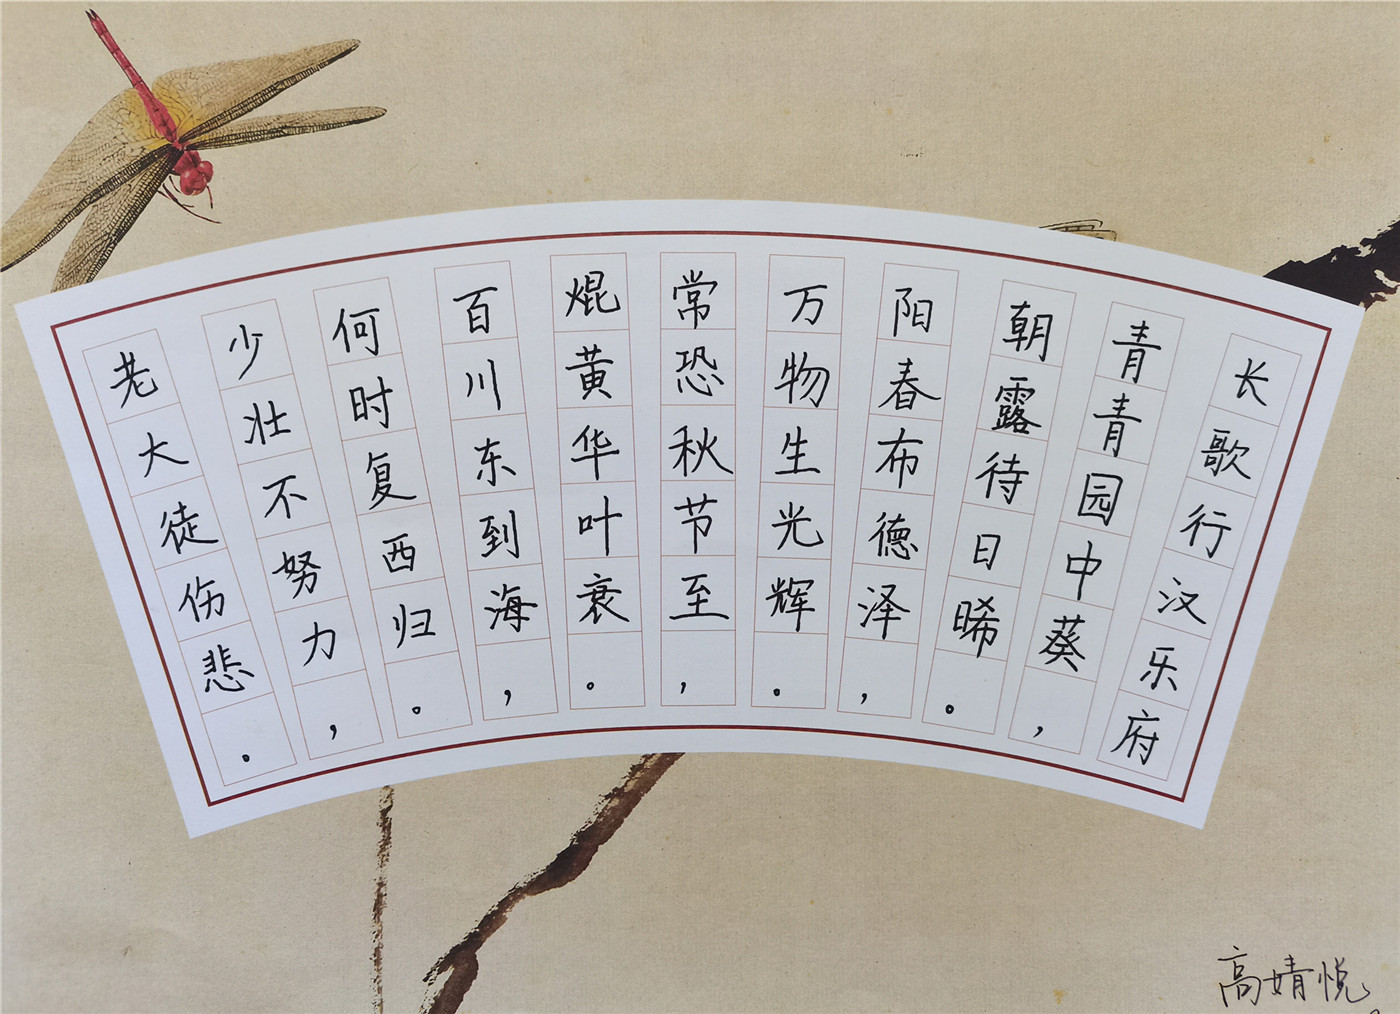 长歌行汉乐府
青青园中葵，
朝露待日晞。
阳春布德泽，
万物生光辉。
常恐秋节至，
焜黄华叶衰。
百川东到海，
何时复西归。
少壮不努力，
老大徒伤悲。
高婧悦